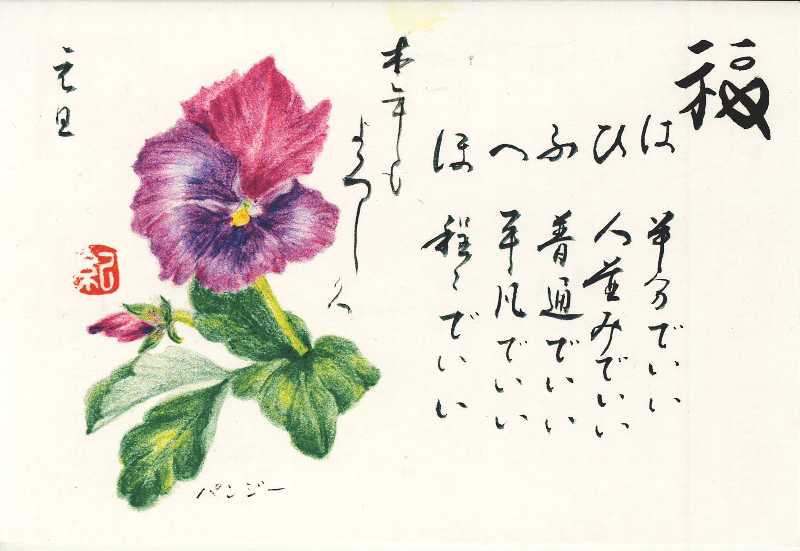 福
は 半分でいい
ひ 人並みでいい
ふ 普通でいい
へ 平凡でいい
ほ 程々でいい
本年も
よろしく
元旦
パンジー